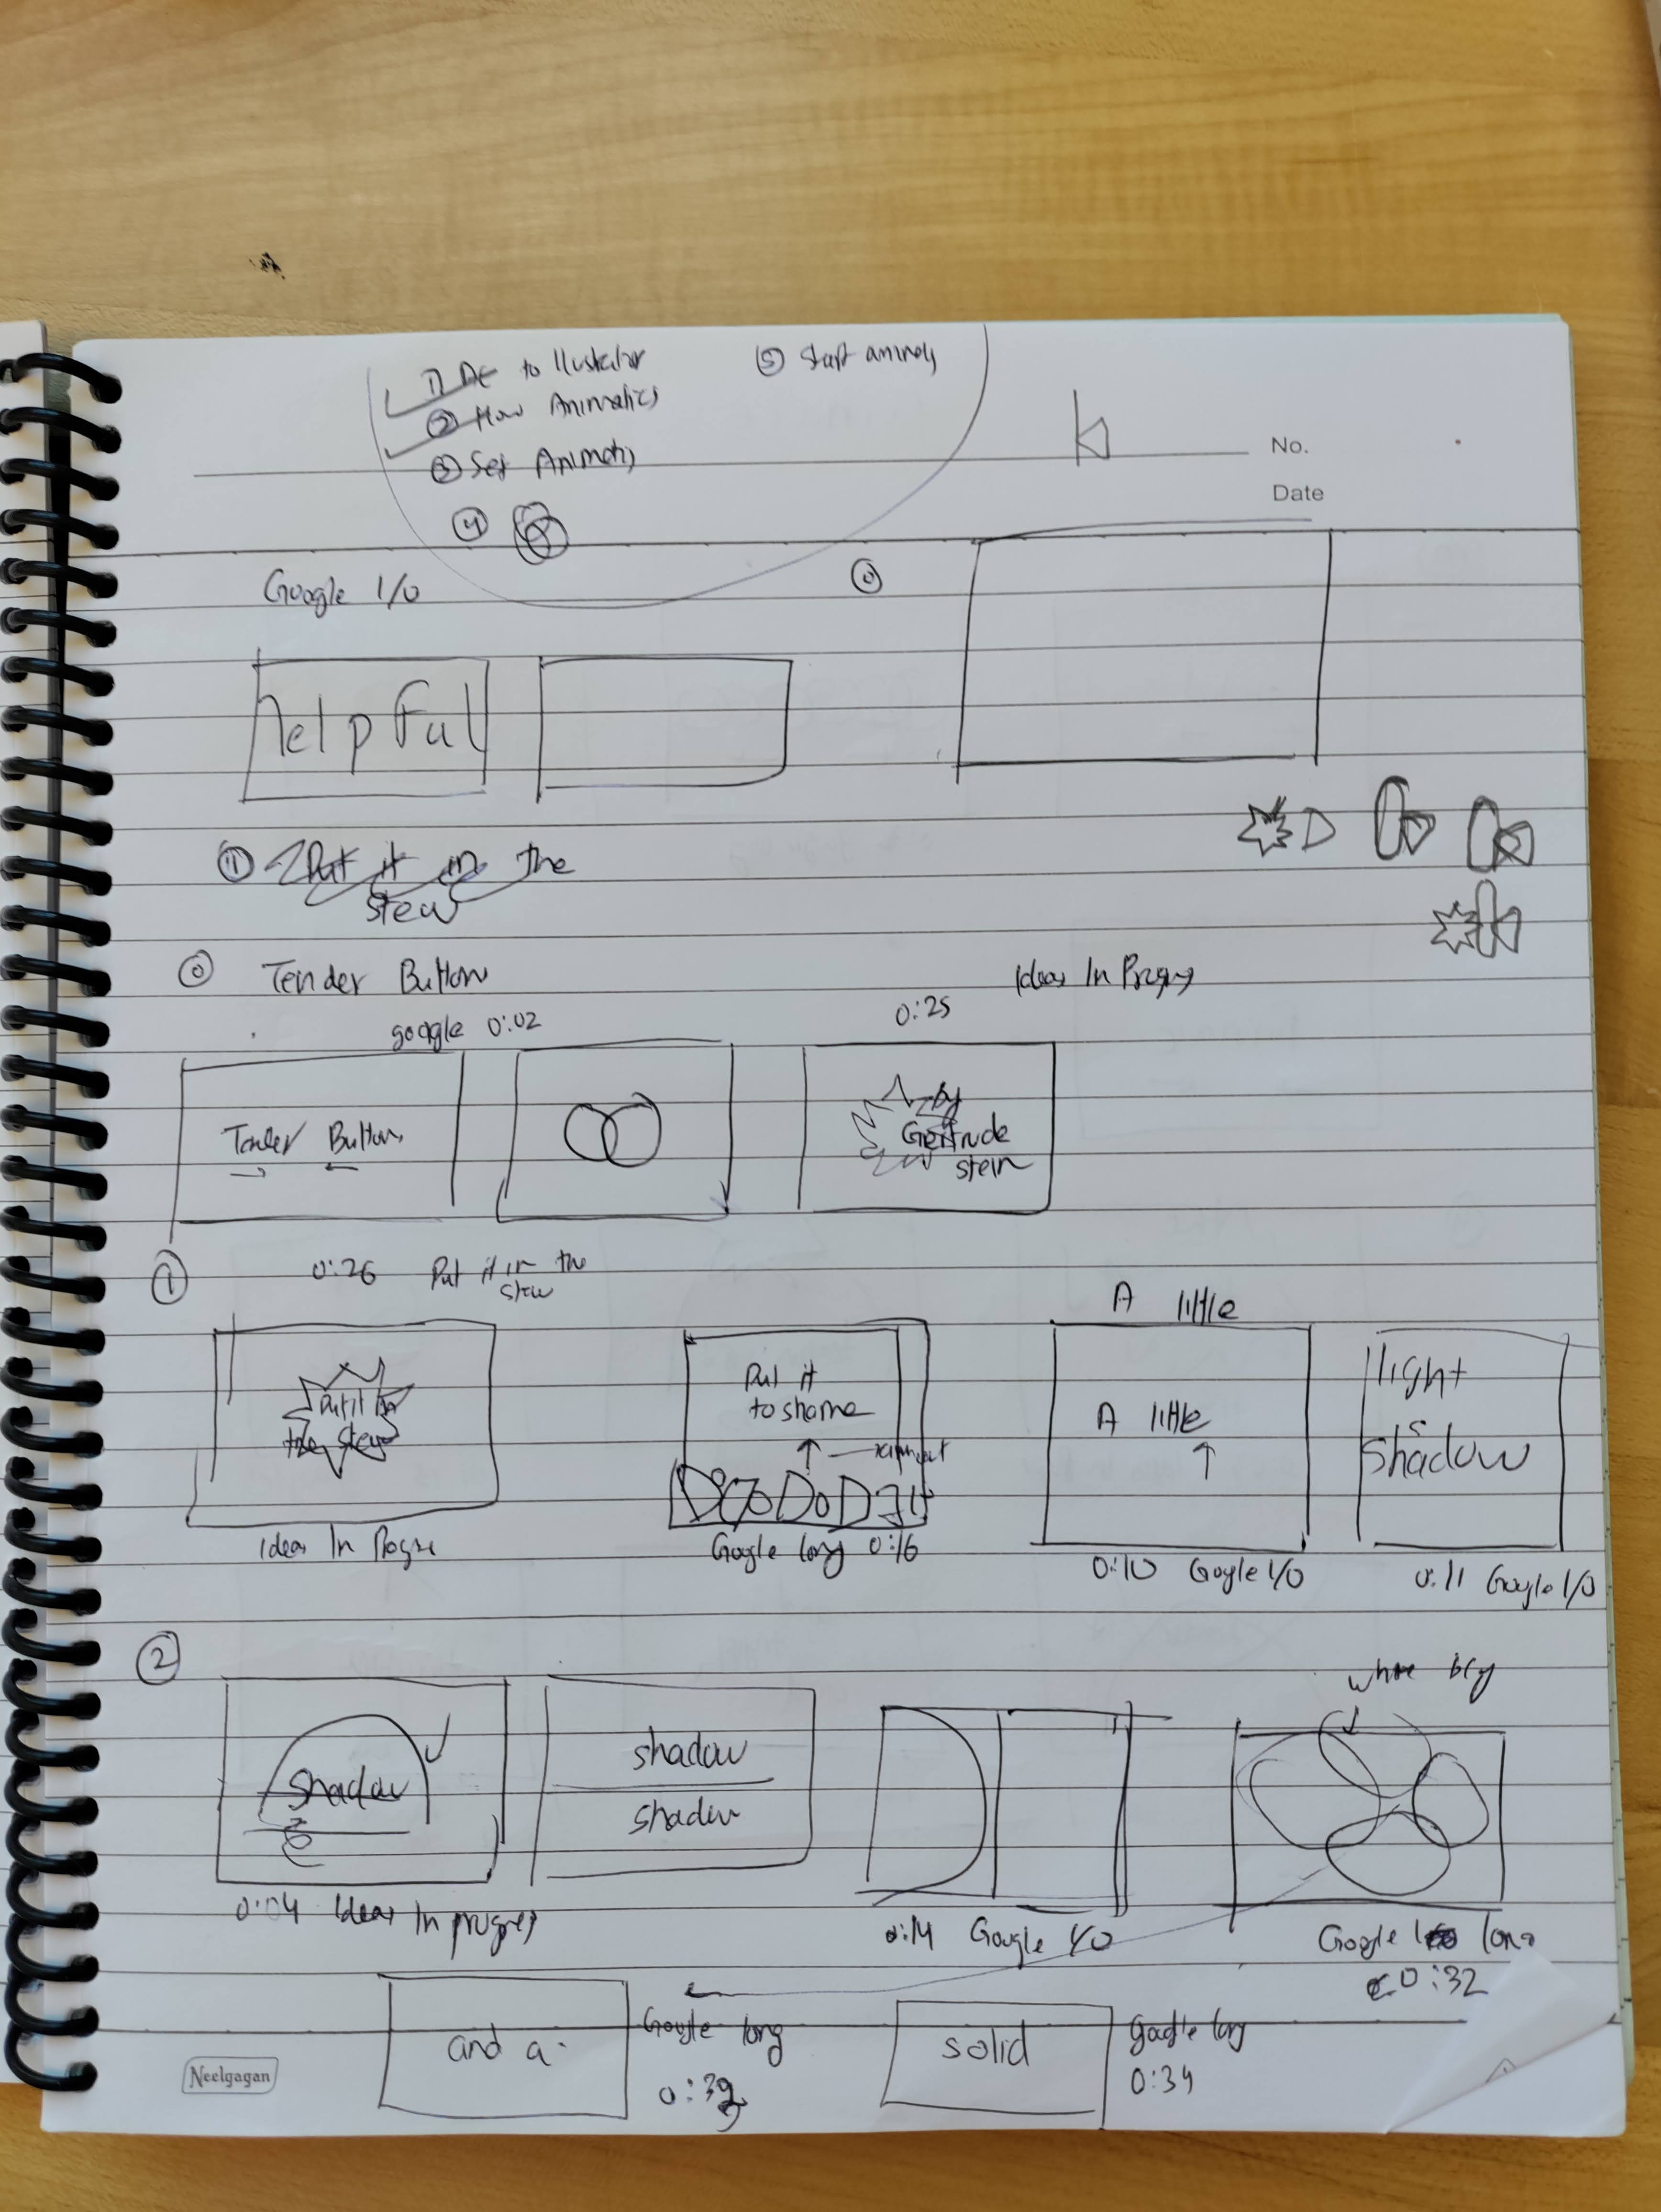 1) AE to Illustrator
② How Animatics
③ Set Animatig
④
⑤ Start aning
No.
Date
Google I/O
⓪
helpful
① Put it in the
stew
⓪ Tender Button
Ideas In Progrs
google 0:02
0:25
Tender Button
by
Gertrude
stein
①
0:26 Put it in the
stew
A little
Put it in
the stew
Put it
to shame
A little
light
&
shadow
Ideas In Progre
Google long 0:16
0:10 Google I/O
0:11 Google I/O
②
Shadow
shadow
shadow
0:04 Ideas In progres
0:14 Google I/O
Google long
0:32
and a
Google long
0:32
solid
google long
0:34
Neelgagan